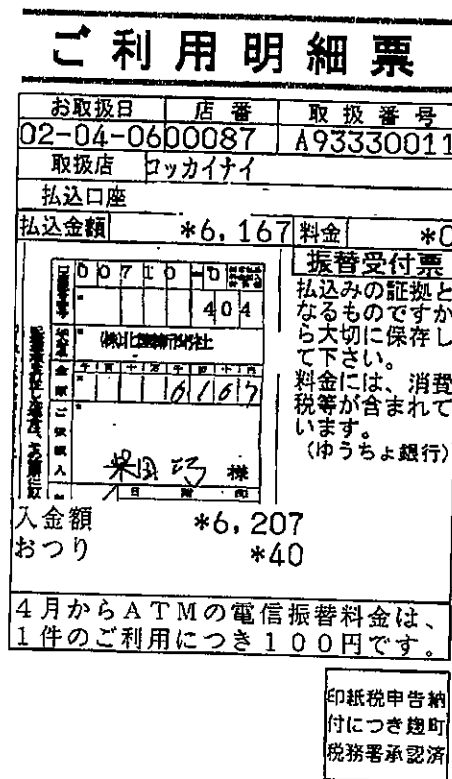 ご利用明細票
お取扱日 店番 取扱番号
02-04-06 00087 A93330011
取扱店 コッカイナイ
払込口座
払込金額 *6,167 料金 *0
振替受付票
払込みの証拠と
なるものですか
ら大切に保存し
て下さい。
料金には、消費
税等が含まれて
います。
(ゆうちょ銀行)
00710-0
404
(株)北國新聞社
千百十万千百十円
6167
ご依頼人
様
入金額 *6,207
おつり *40
4月からATMの電信振替料金は、
1件のご利用につき100円です。
印紙税申告納
付につき麹町
税務署承認済